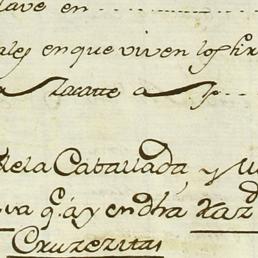 lave en
ales en que viven los hix
Zacatte a
dela Caballada, y
va q.e ay en dha Haz.d
Cruzezitas